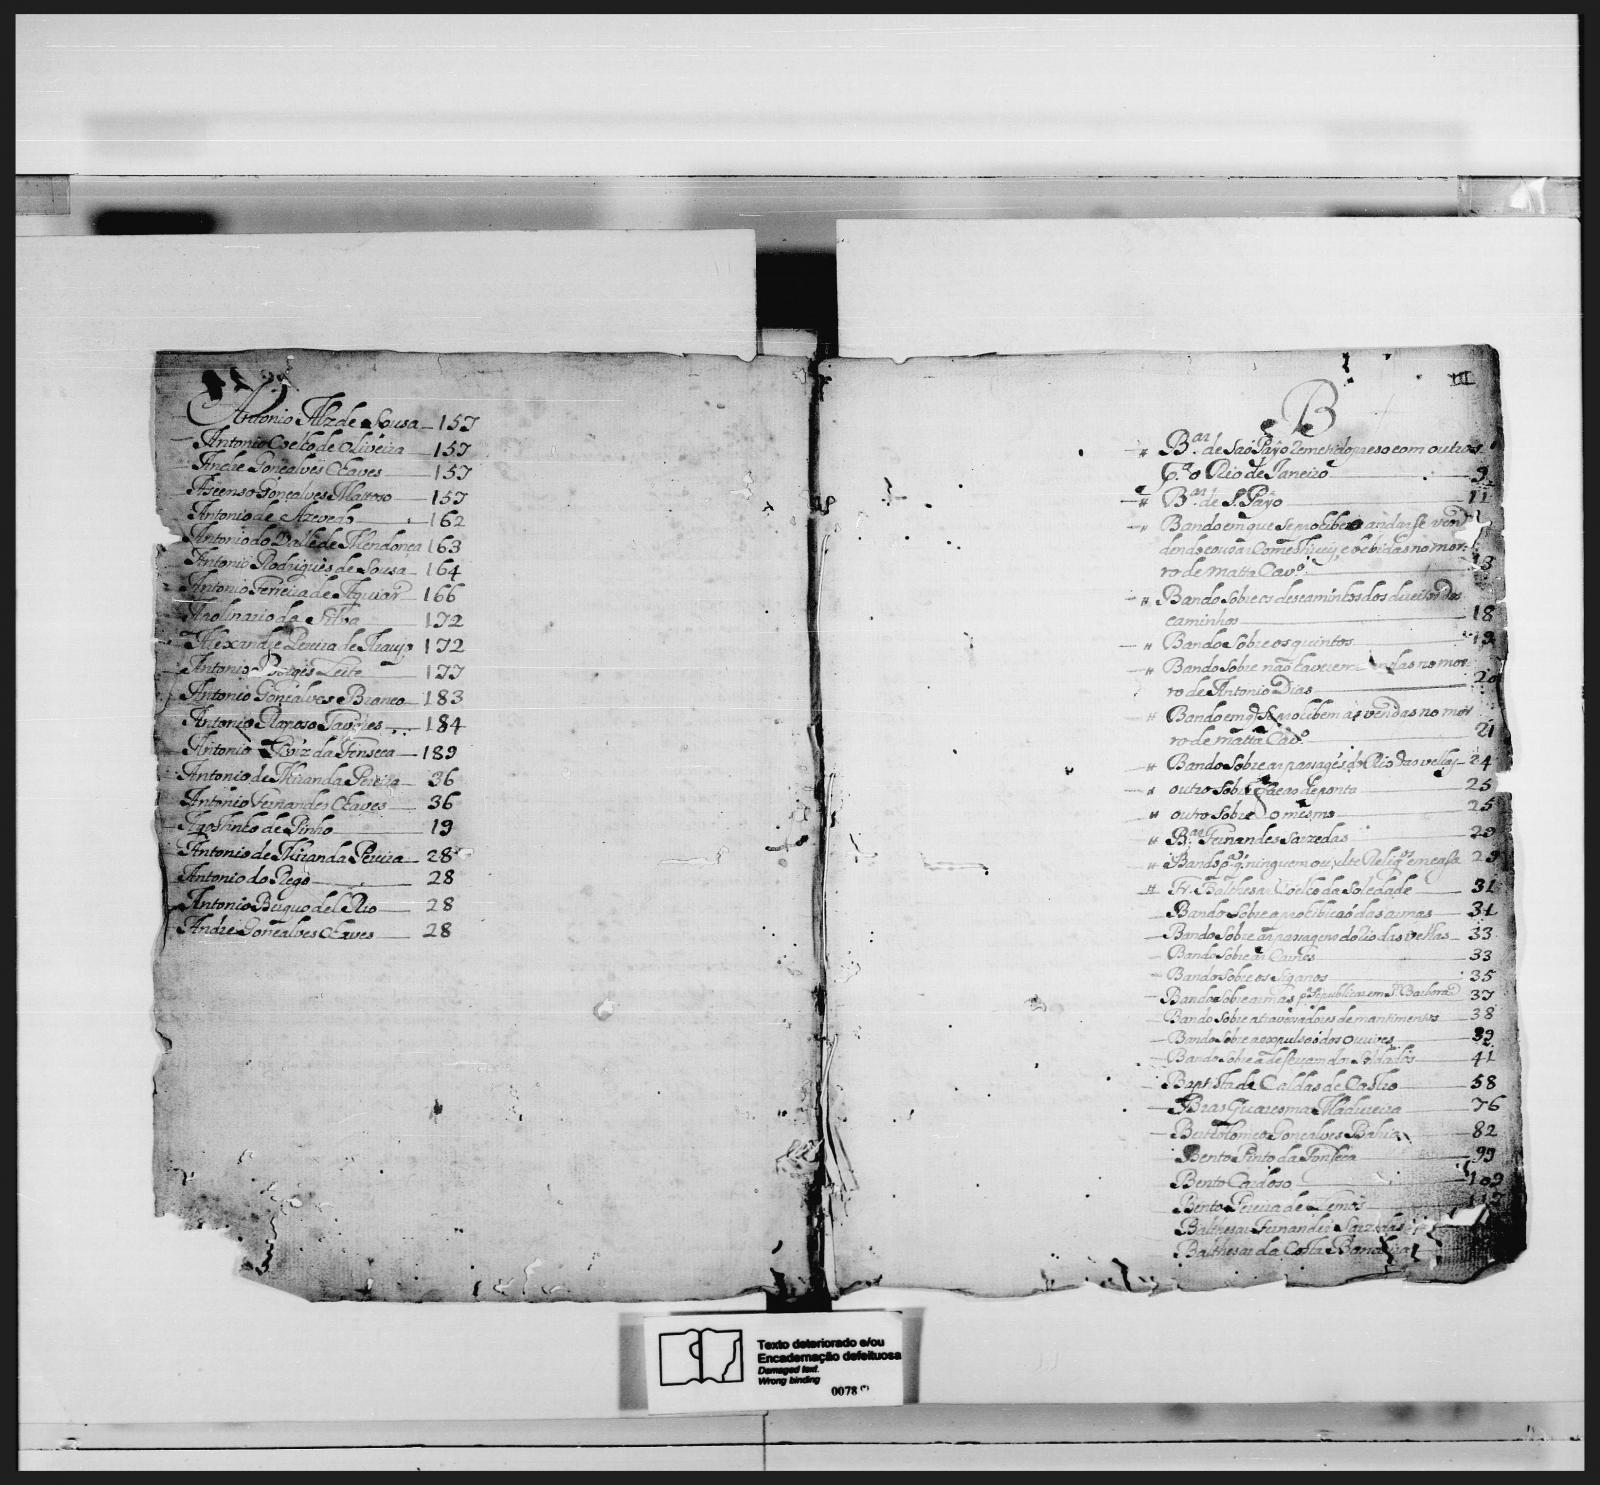 Antonio Alz de Sousa 157
Antonio Coelho de Oliveira 157
Andre Gonçalves Chaves 157
Ascenso Gonçalves Matoso 157
Antonio de Azevedo 162
Antonio do Valle de Mendonça 163
Antonio Rodrigues de Sousa 164
Antonio Ferreira de Aguiar 166
Apolinario da Silva 172
Alexandre Pereira de Araujo 172
Antonio Borges Leite 177
Antonio Gonçalves Branco 183
Antonio Raposo Tavares 184
Antonio da Fonseca 189
Antonio de Miranda Pereira 36
Antonio Fernandes Chaves 36
Agostinho de Pinho 19
Antonio de Miranda Pereira 28
Antonio do Rego 28
Antonio Berquo del Rio 28
Andre Gonçalves Chaves 28
III
B
" B.ar de São Payo Remetido preso com outros
p.ª o Rio de Janeiro 9
" B.ar de S. Payo 11
" Bando em que se prohibe andarse ven
dendo cousas Comestiveis, e bebidas no mor
ro de matta Cav.os 13
" Bando sobre os descaminhos dos direitos dos
caminhos 18
" Bando sobre os quintos 19
" Bando sobre não haverem vendas no mor
ro de Antonio Dias 20
" Bando em q se prohibem as vendas no mor
ro de matta Cav.os 21
" Bando sobre as passages do Rio das velhas 24
" outro sobre facas de ponta 25
" outro sobre o mesmo 25
" B.ar Fernandes Sarzedas 29
" Bando p.ª q ninguem Relig.os em casa 29
" Fr. Balthesar Coelho da Soledade 31
Bando sobre a prohibicaó das armas 31
Bando sobre as passagens do Rio das velhas 33
Bando sobre as Cavres 33
Bando sobre os siganos 35
Bando sobre armas p.ª se publicar em S.ta Barbora 37
Bando sobre atravesadores de mantimentos 38
Bando sobre a expulsaó dos ourives 39
Bando sobre a desercam dos Soldados 41
Baptista de Caldas de Castro 58
Bras Quaresma Madureira 76
Bertholomeo Gonçalves Bahia 82
Bento Pinto da Fonseca 99
Bento Cardoso 109
Bento Pereira de Lemos
Balthesar Fernandes Sarzedas
Balthesar da Costa
Texto deteriorado e/ou
Encadernação defeituosa
Damaged text.
Wrong binding
0078